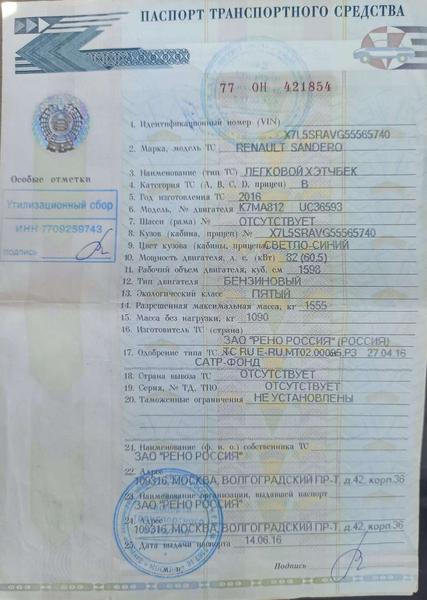 ПАСПОРТ ТРАНСПОРТНОГО СРЕДСТВА
77 ОН 421854
1. Идентификационный номер (VIN)
X7L5SRAVG55565740
2. Марка, модель ТС RENAULT SANDERO
3. Наименование (тип ТС) ЛЕГКОВОЙ ХЭТЧБЕК
4. Категория ТС (А, В, С, D, прицеп) B
5. Год изготовления ТС 2016
6. Модель, № двигателя K7MA812 UC36593
7. Шасси (рама) № ОТСУТСТВУЕТ
8. Кузов (кабина, прицеп) № X7L5SRAVG55565740
9. Цвет кузова (кабины, прицепа) СВЕТЛО-СИНИЙ
10. Мощность двигателя, л. с. (кВт) 82 (60,5)
11. Рабочий объем двигателя, куб. см 1598
12. Тип двигателя БЕНЗИНОВЫЙ
13. Экологический класс ПЯТЫЙ
14. Разрешенная максимальная масса, кг 1555
15. Масса без нагрузки, кг 1090
16. Изготовитель ТС (страна)
ЗАО "РЕНО РОССИЯ" (РОССИЯ)
17. Одобрение типа ТС № ТС RU Е-RU.МТ02.00095.Р3 27.04.16
САТР-ФОНД
18. Страна вывоза ТС ОТСУТСТВУЕТ
19. Серия, № ТД, ТПО ОТСУТСТВУЕТ
20. Таможенные ограничения НЕ УСТАНОВЛЕНЫ
21. Наименование (ф. и. о.) собственника ТС
ЗАО "РЕНО РОССИЯ"
22. Адрес
109316, МОСКВА, ВОЛГОГРАДСКИЙ ПР-Т, д.42, корп.36
23. Наименование организации, выдавшей паспорт
ЗАО "РЕНО РОССИЯ"
24. Адрес
109316, МОСКВА, ВОЛГОГРАДСКИЙ ПР-Т, д.42, корп.36
25. Дата выдачи паспорта 14.06.16
М. П.
Подпись
Особые отметки
Утилизационный сбор
ИНН 7709259743
подпись